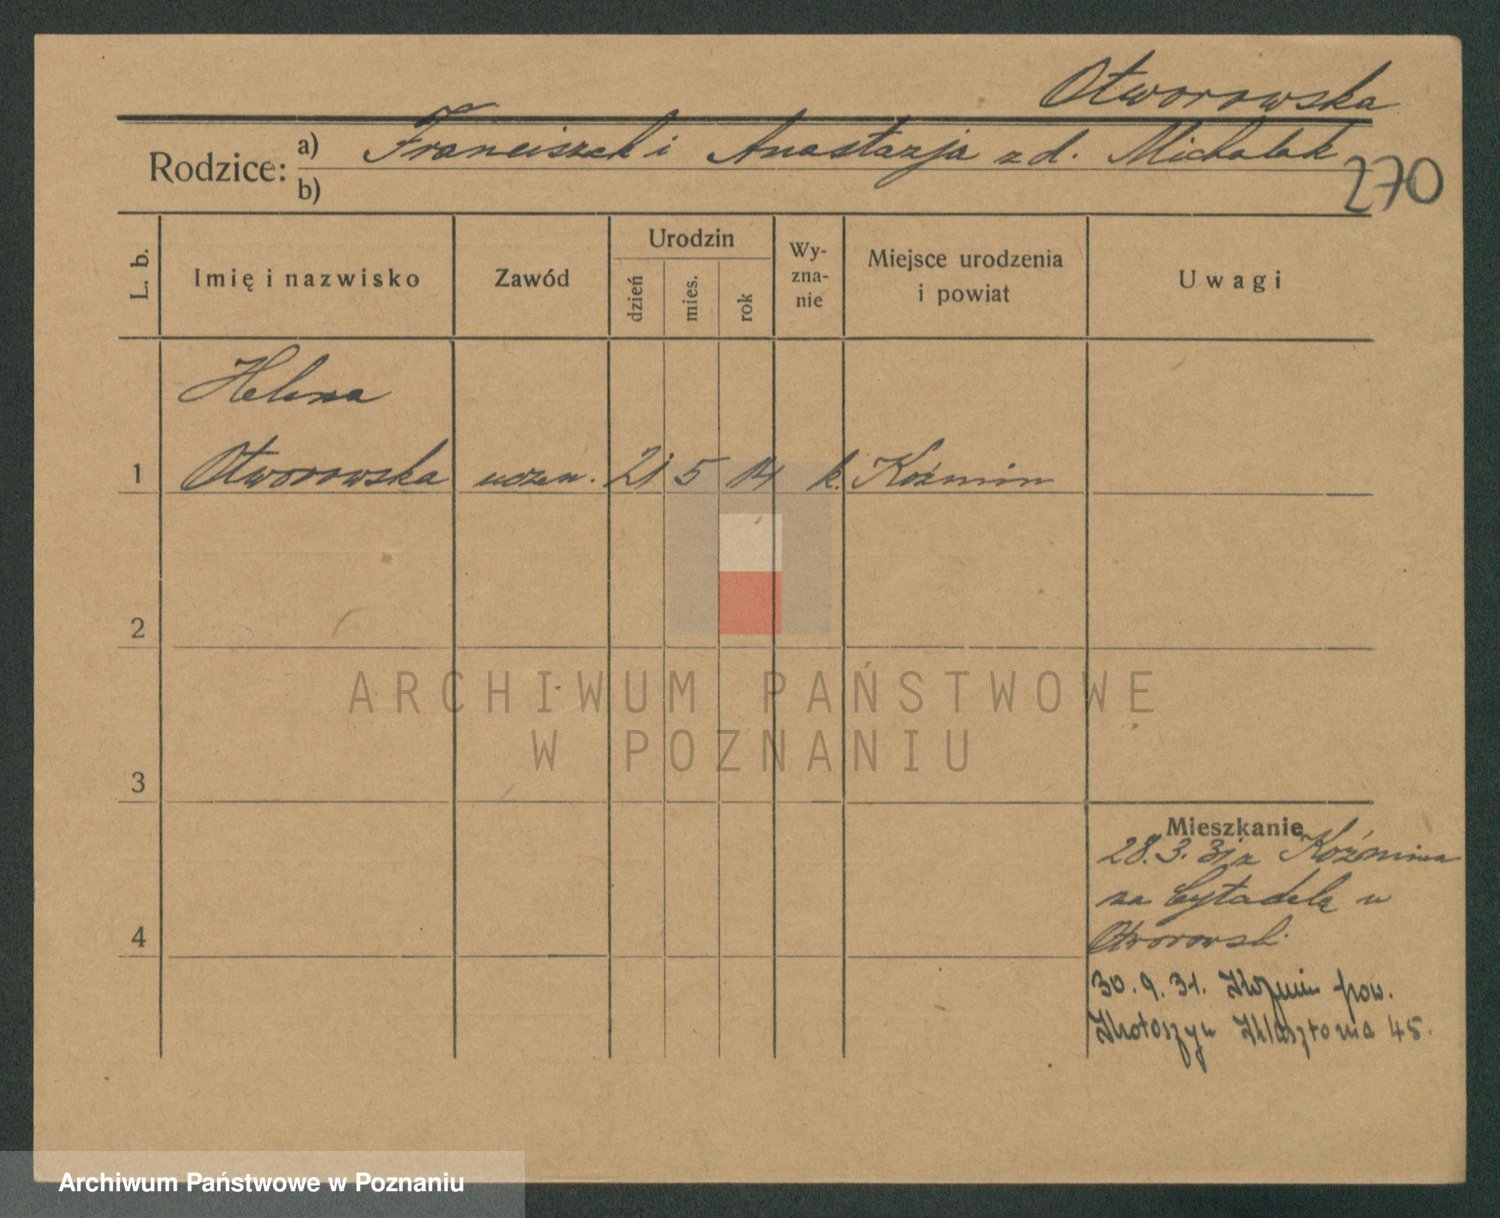 Otworowska
Rodzice: a) Franciszek i Anastazja z d. Michalak
b)
270
L. b.
Imię i nazwisko
Zawód
Urodzin
dzień
mies.
rok
Wy-
zna-
nie
Miejsce urodzenia
i powiat
Uwagi
Helena
1 Otworowska uczen. 21 5 14 k. Koźmin
2
3
4
Mieszkanie
28.3.31 z Koźmina
na Cytadelę u
Otworowsk.
30.9.31. Koźmin pow.
Krotoszyn Klasztorna 45.
ARCHIWUM PAŃSTWOWE
W POZNANIU
Archiwum Państwowe w Poznaniu